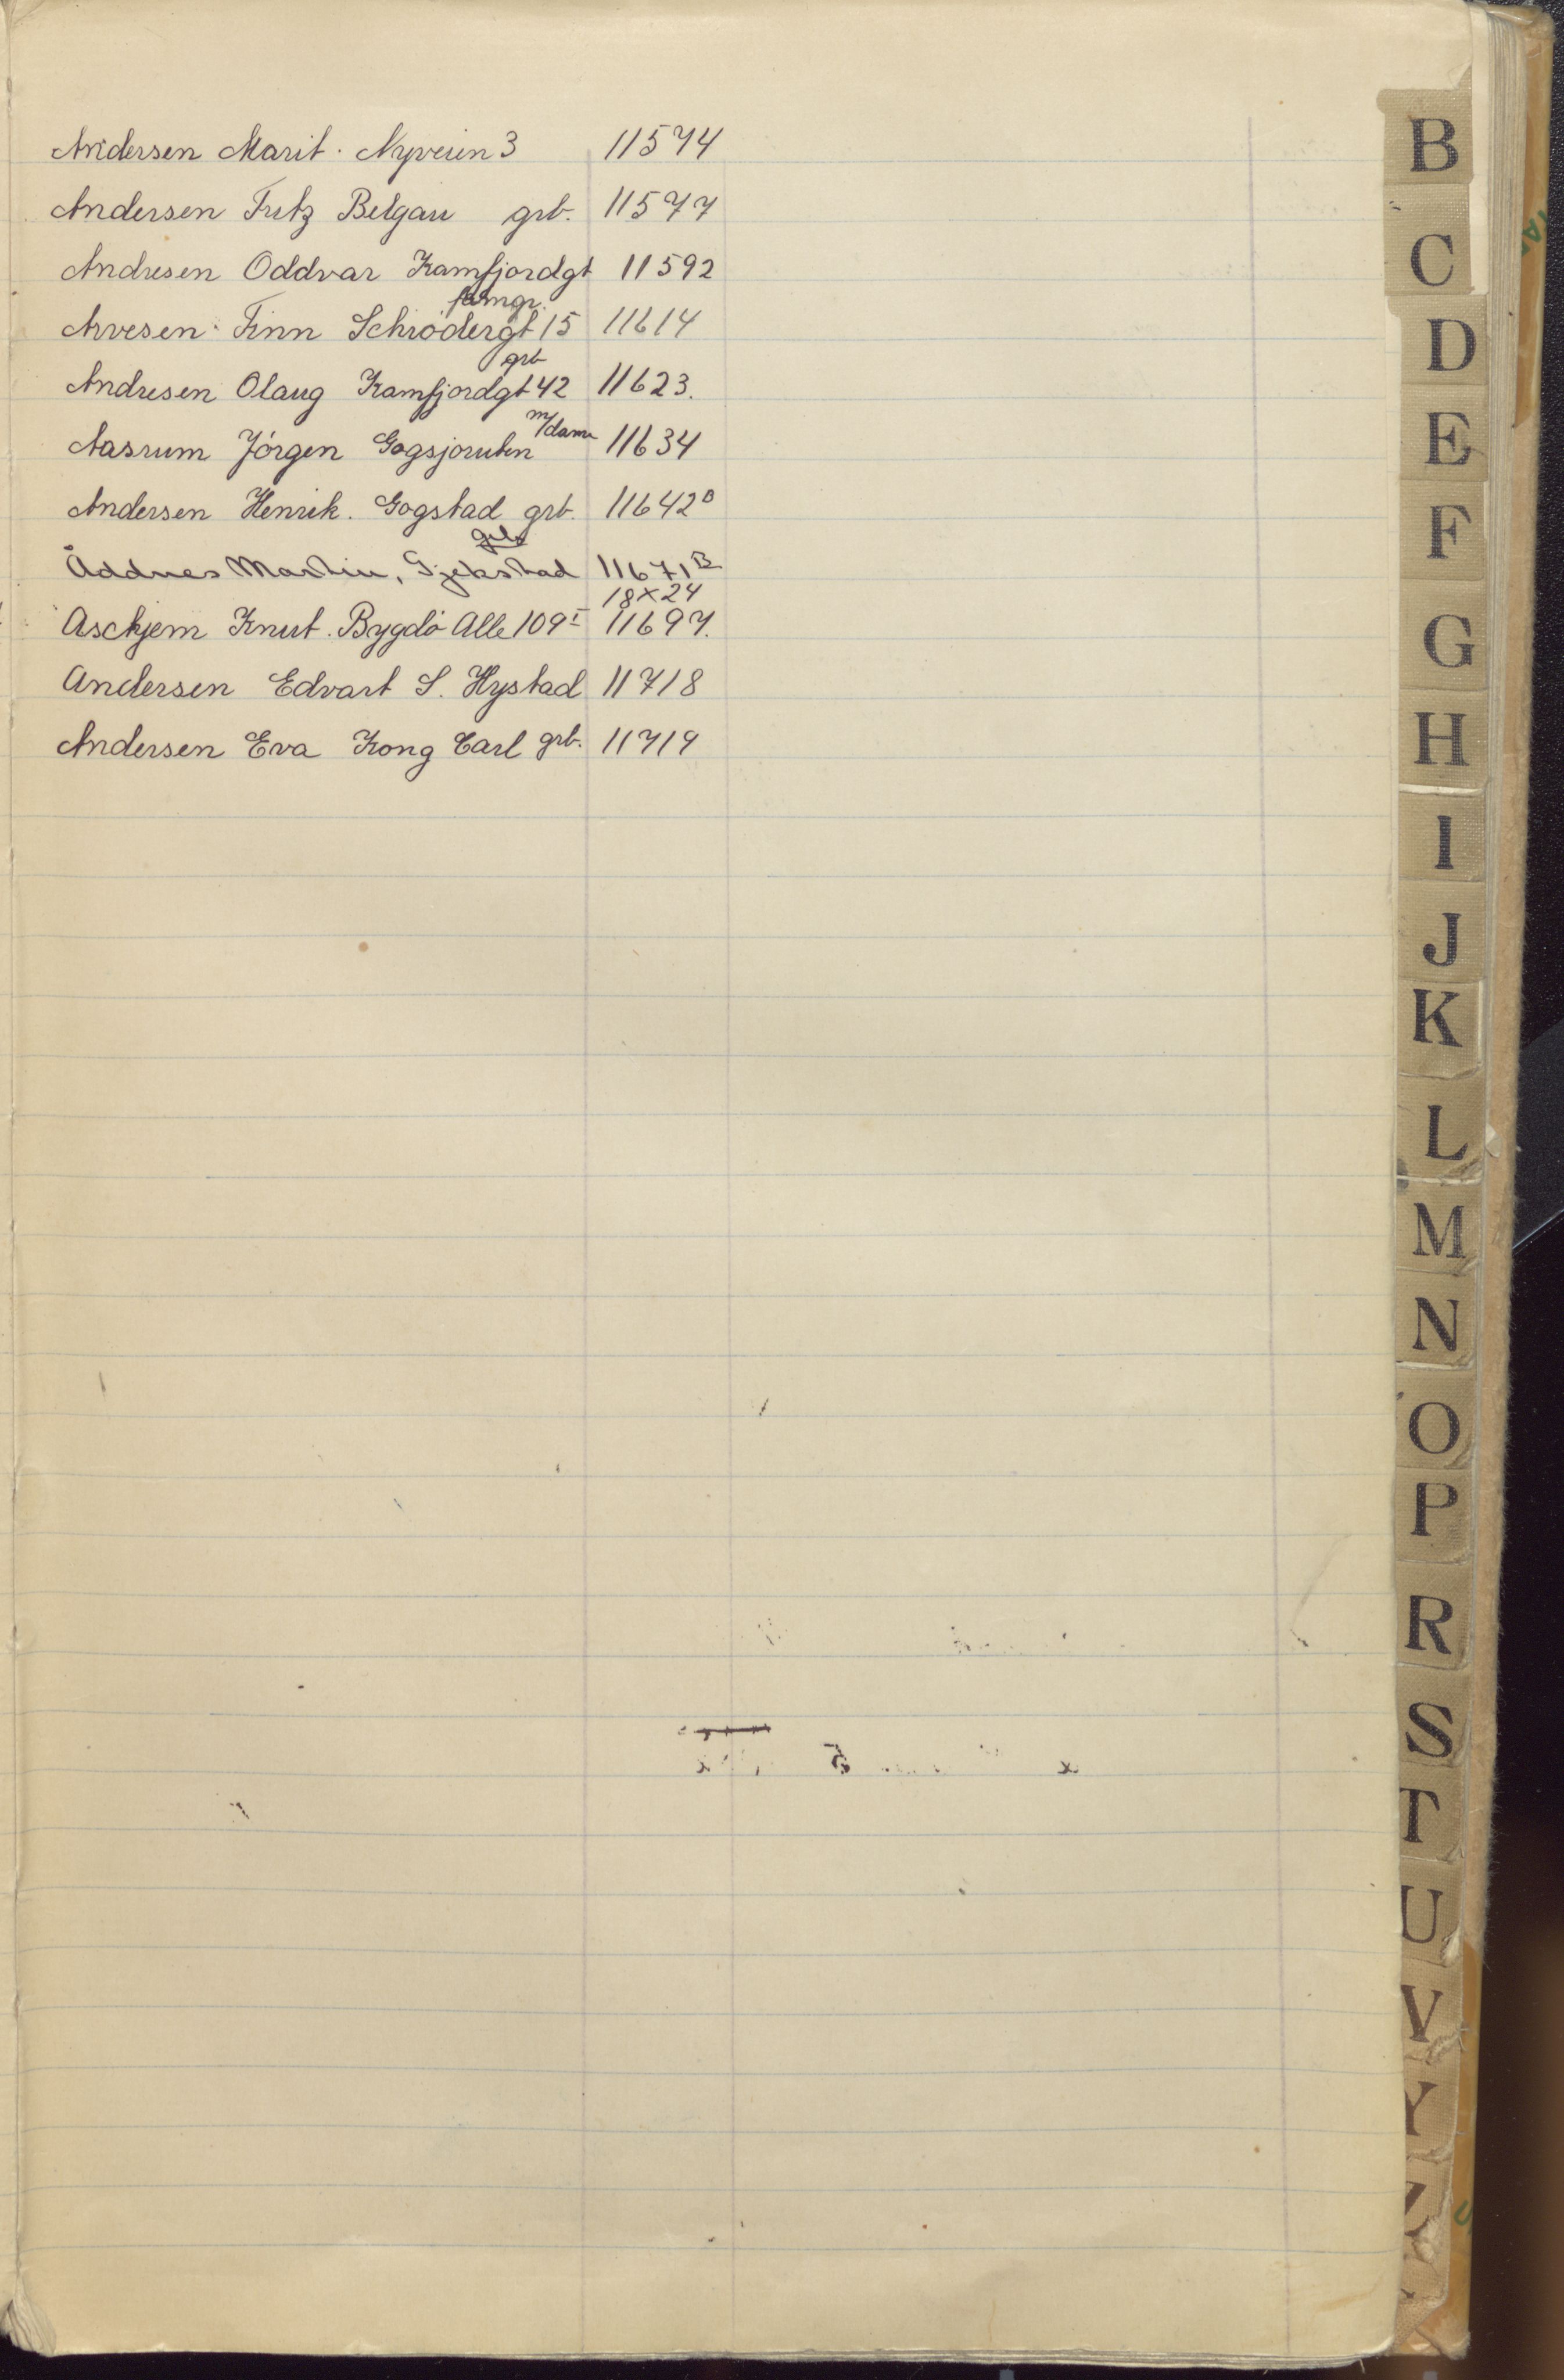 Andersen Marit. Nyveien 3 11574
Andersen Fritz Belgau grb. 11577
Andresen Oddvar Kamfjordgt 11592
famgr.
Arvesen. Finn Schrödergt 15 11614
grb
Andresen Olaug Kamfjordgt 42 11623.
m/dame
Aasrum Jörgen Gogsjoruten 11634
Andersen Henrik. Gogstad grb. 11642B
grb
Åddnes Martin, Gjekstad 11671B
18x24
Askjem Knut. Bygdö Alle 109I 11697.
Andersen Edvart S. Hystad 11718
Andersen Eva Kong Carl grb. 11719
B
C
D
E
F
G
H
I
J
K
L
M
N
O
P
R
S
T
U
V
Y